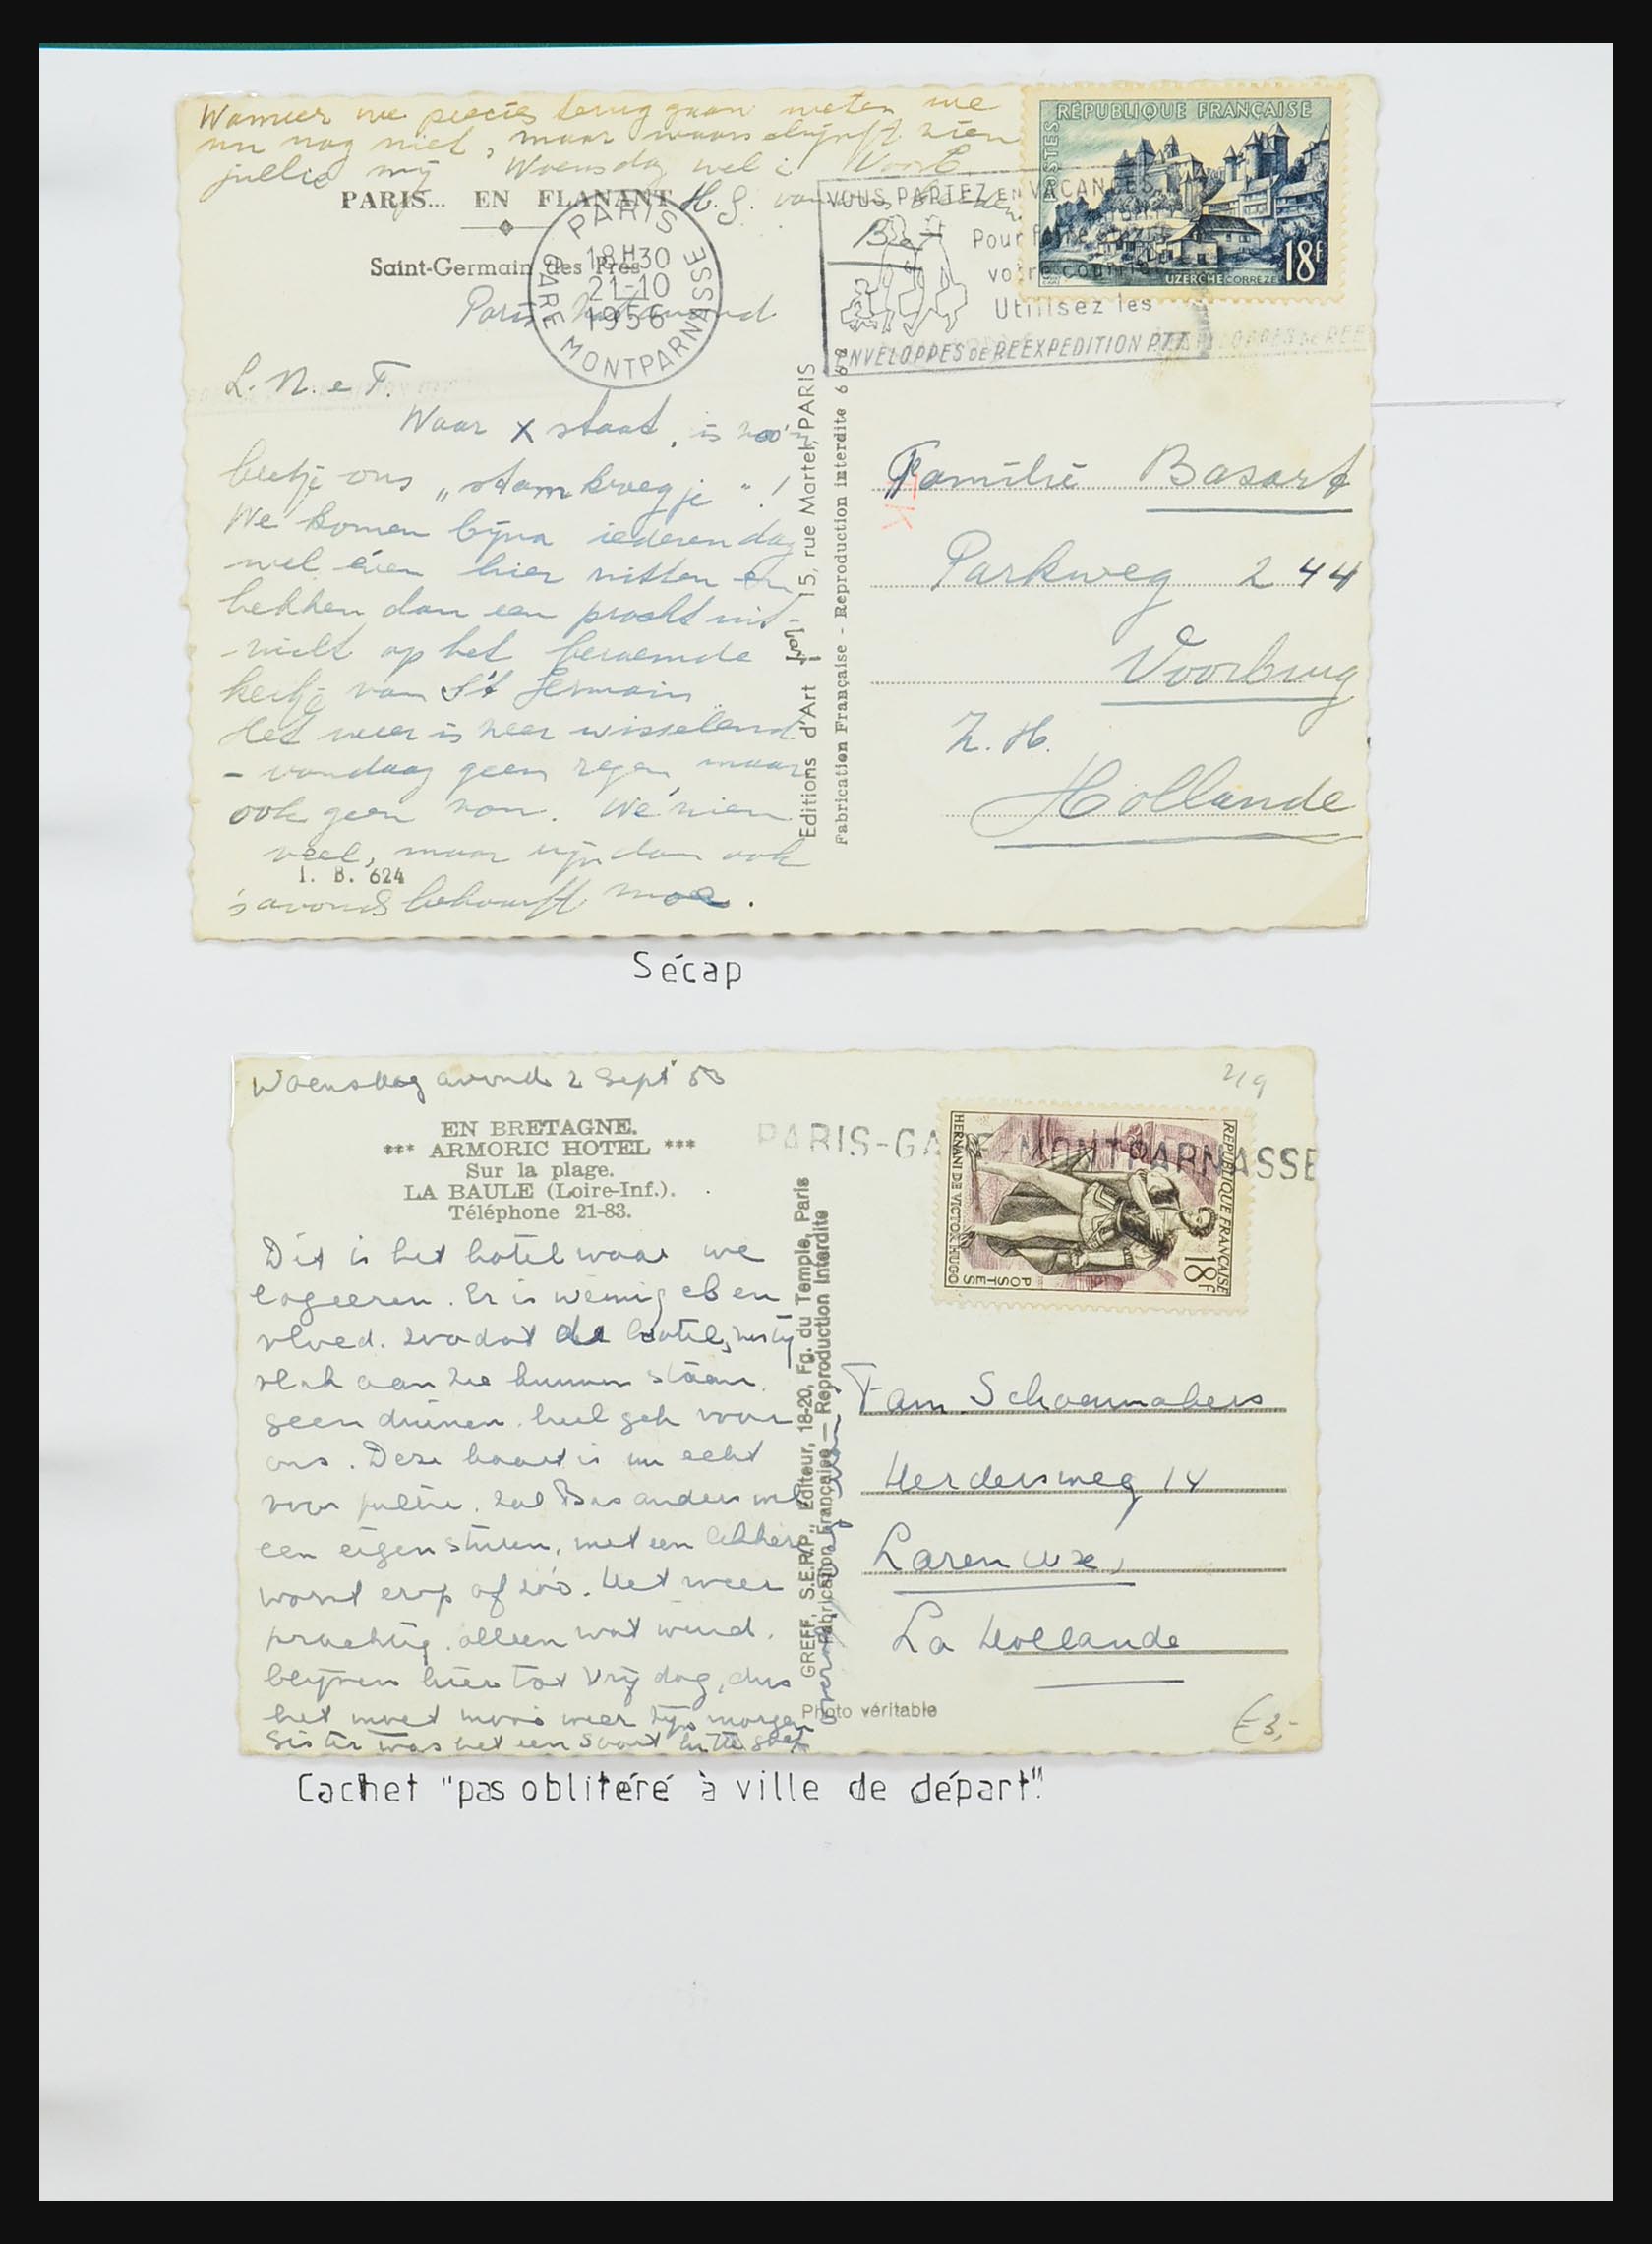 Wanneer we precies terug gaan weten we
nu nog niet, maar waarschijnlijk zien
jullie mij Woensdag wel i Voorb.
PARIS... EN FLANANT
H. G. van
Saint-Germain des Prés
PARIS
18H30
21-10
1956
GARE MONTPARNASSE
VOUS PARTEZ EN VACANCES
Pour
votre courrier
Utilisez les
ENVELOPPES DE REEXPEDITION PTT
RÉPUBLIQUE FRANÇAISE
POSTES
UZERCHE CORRÈZE
18F
Parijs
L. N. e F.
Waar X staat, is zoo'n
beetje ons „stamkroegje"!
We komen bijna iederen dag
wel éven hier zitten en
hebben dan een pracht uit-
zicht op het beroemde
kerkje van St Germain
Het weer is zeer wisselend
- vandaag geen regen, maar
ook geen zon. We zien
veel, maar zijn dan ook
I. B. 624
's avonds behoorlijk moe.
Editions d'Art 15, rue Martel, PARIS
Fabrication Française - Reproduction interdite
Familie Basart
Parkweg 244
Voorburg
Z. H.
Hollande
Sécap
Woensdag avond 2 Sept 53
2/9
EN BRETAGNE.
*** ARMORIC HOTEL ***
Sur la plage.
LA BAULE (Loire-Inf.).
Téléphone 21-83.
PARIS-GARE-MONTPARNASSE
RÉPUBLIQUE FRANÇAISE
HERNANI DE VICTOR HUGO
POSTES
18F
Dit is het hotel waar we
logeeren. Er is weinig eb en
vloed. zoodat de hotels
vlak aan zee kunnen staan.
geen duinen. heel gek voor
ons. Deze kaart is nu echt
voor jullie. zal Bas anders wel
een eigen sturen, met een lekkere
worst erop of zóó. Het weer
prachtig. alleen wat wind.
blijven hier tot Vrijdag, dus
het moet mooi weer zijn morgen
Gister was het een soort
GREFF, S.E.R.P., Editeur, 18-20, Fg. du Temple, Paris
Fabrication Française — Reproduction Interdite
Photo véritable
Fam Schoenmakers
Herdersweg 14
Laren
La Hollande
€3,-
Cachet "pas oblitéré à ville de départ".